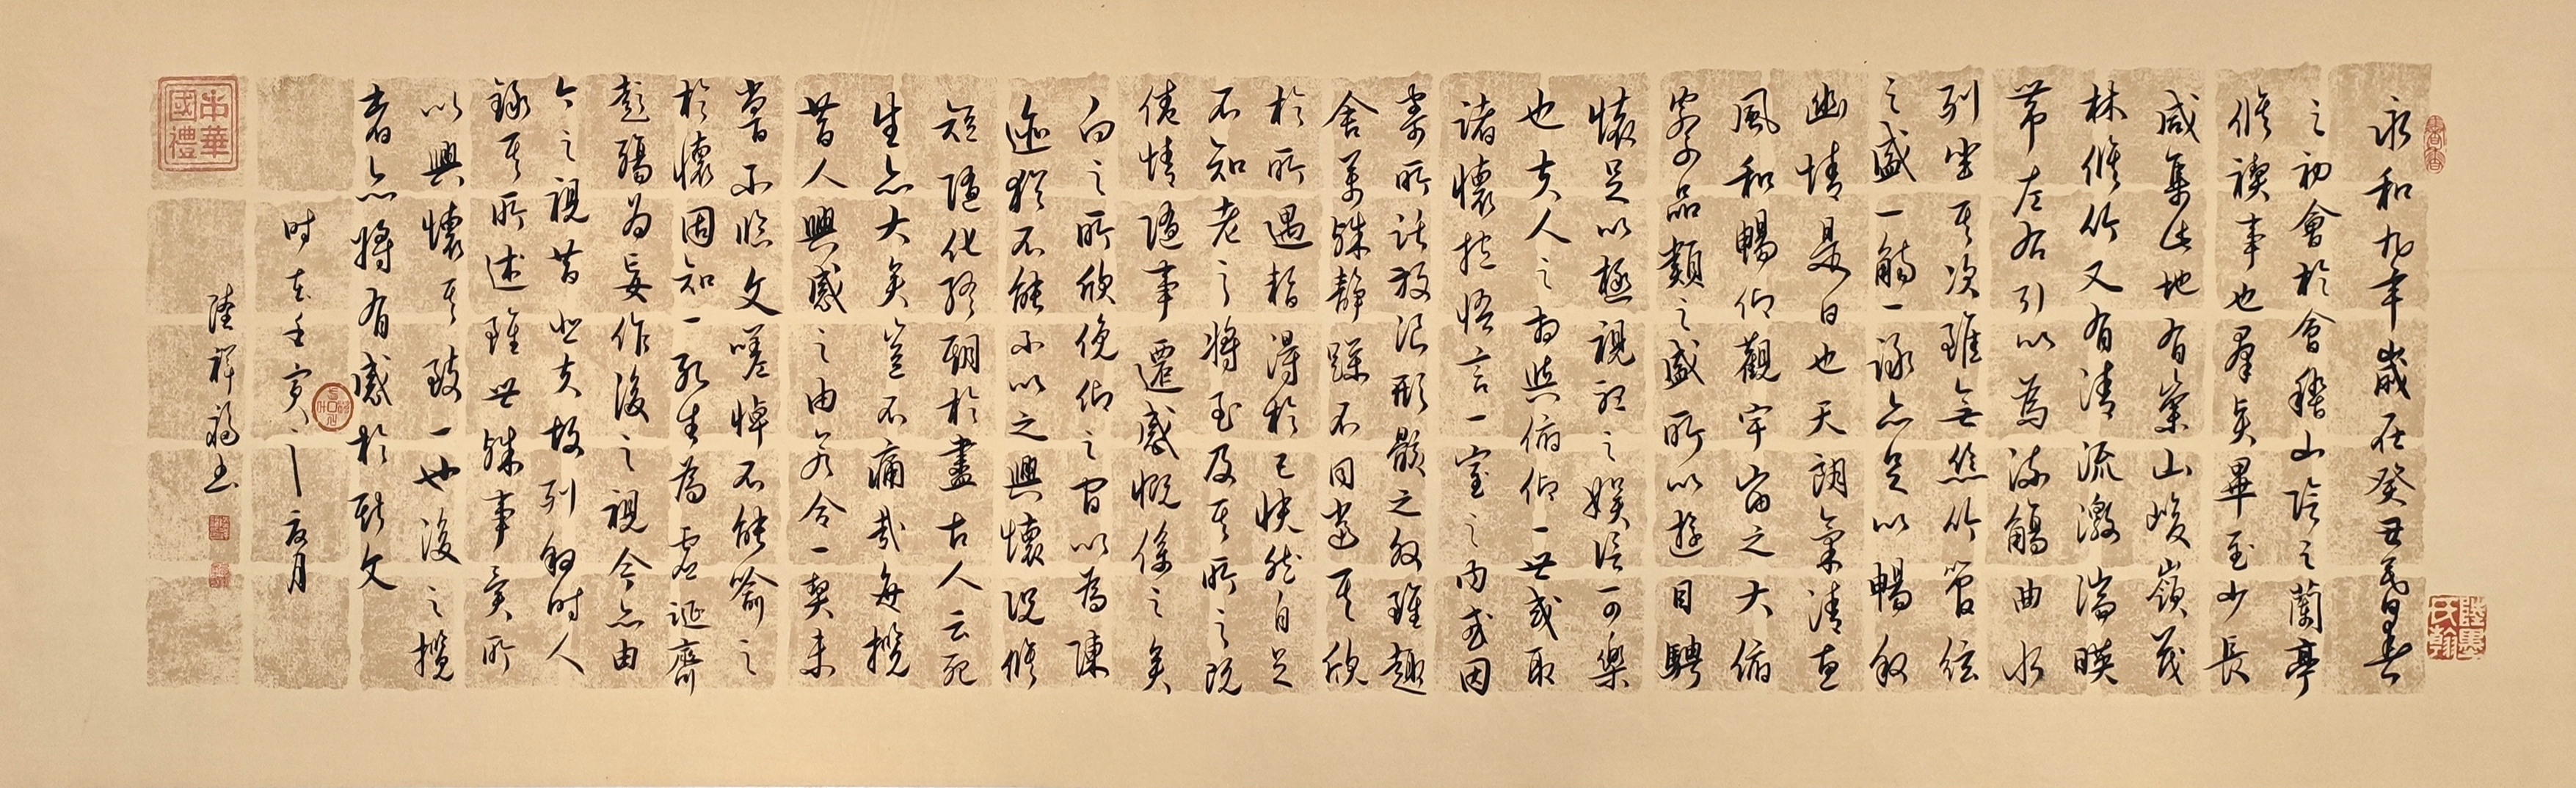 永和九年歲在癸丑暮春
之初會於會稽山陰之蘭亭
脩禊事也群賢畢至少長
咸集此地有崇山峻嶺茂
林脩竹又有清流激湍映
帶左右引以為流觴曲水
列坐其次雖無絲竹管弦
之盛一觴一詠亦足以暢敘
幽情是日也天朗氣清惠
風和暢仰觀宇宙之大俯
察品類之盛所以遊目騁
懷足以極視聽之娛信可樂
也夫人之相與俯仰一世或取
諸懷抱悟言一室之內或因
寄所託放浪形骸之外雖趣
舍萬殊靜躁不同當其欣
於所遇暫得於己快然自足
不知老之將至及其所之既
倦情隨事遷感慨係之矣
向之所欣俛仰之間以為陳
迹猶不能不以之興懷況脩
短隨化終期於盡古人云死
生亦大矣豈不痛哉每攬
昔人興感之由若合一契未
嘗不臨文嗟悼不能喻之
於懷固知一死生為虛誕齊
彭殤為妄作後之視今亦由
今之視昔悲夫故列敘時人
錄其所述雖世殊事異所
以興懷其致一也後之攬
者亦將有感於斯文
时在壬寅之夏月
陸祥福书
中華國禮